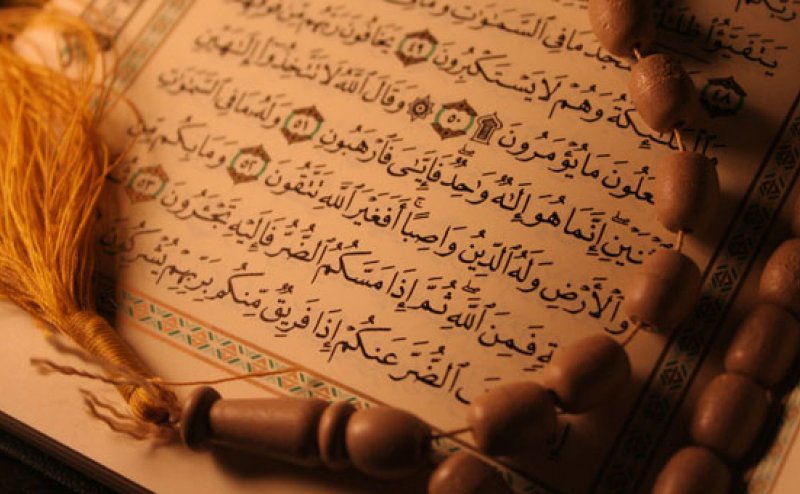 رَبَّكُمْ
يَتَفَيَّؤُا۟ ظِلَٰلُهُۥ
٤٨ يَسْجُدُ مَا فِى ٱلسَّمَٰوَٰتِ وَمَا
وَٱلْمَلَٰٓئِكَةُ وَهُمْ لَا يَسْتَكْبِرُونَ ٤٩ يَخَافُونَ رَبَّهُم مِّن فَوْقِهِمْ
وَيَفْعَلُونَ مَا يُؤْمَرُونَ ۩ ٥٠ ۞ وَقَالَ ٱللَّهُ لَا تَتَّخِذُوٓا۟ إِلَٰهَيْنِ
ٱثْنَيْنِ إِنَّمَا هُوَ إِلَٰهٌ وَٰحِدٌ فَإِيَّٰىَ فَٱرْهَبُونِ ٥١ وَلَهُۥ مَا فِى ٱلسَّمَٰوَٰتِ
وَٱلْأَرْضِ وَلَهُ ٱلدِّينُ وَاصِبًا أَفَغَيْرَ ٱللَّهِ تَتَّقُونَ ٥٢ وَمَا بِكُم مِّن
فَمِنَ ٱللَّهِ ثُمَّ إِذَا مَسَّكُمُ ٱلضُّرُّ فَإِلَيْهِ تَجْـَٔرُونَ ٥٣
ٱلضُّرَّ عَنكُمْ إِذَا فَرِيقٌ مِّنكُم بِرَبِّهِمْ يُشْرِكُونَ